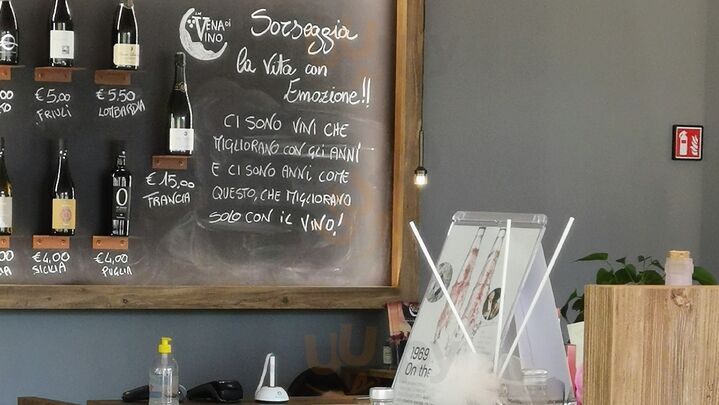 VENA DI
VINO
Sorseggia
la Vita con
Emozione!!
CI SONO VINI CHE
MIGLIORANO CON GLI ANNI
E CI SONO ANNI COME
QUESTO, CHE MIGLIORANO
SOLO CON IL VINO!
€ 5,00
FRIULI
€ 5,50
LOMBARDIA
€ 15,00
FRANCIA
€4,00
SICILIA
€4,00
PUGLIA
1969
On the